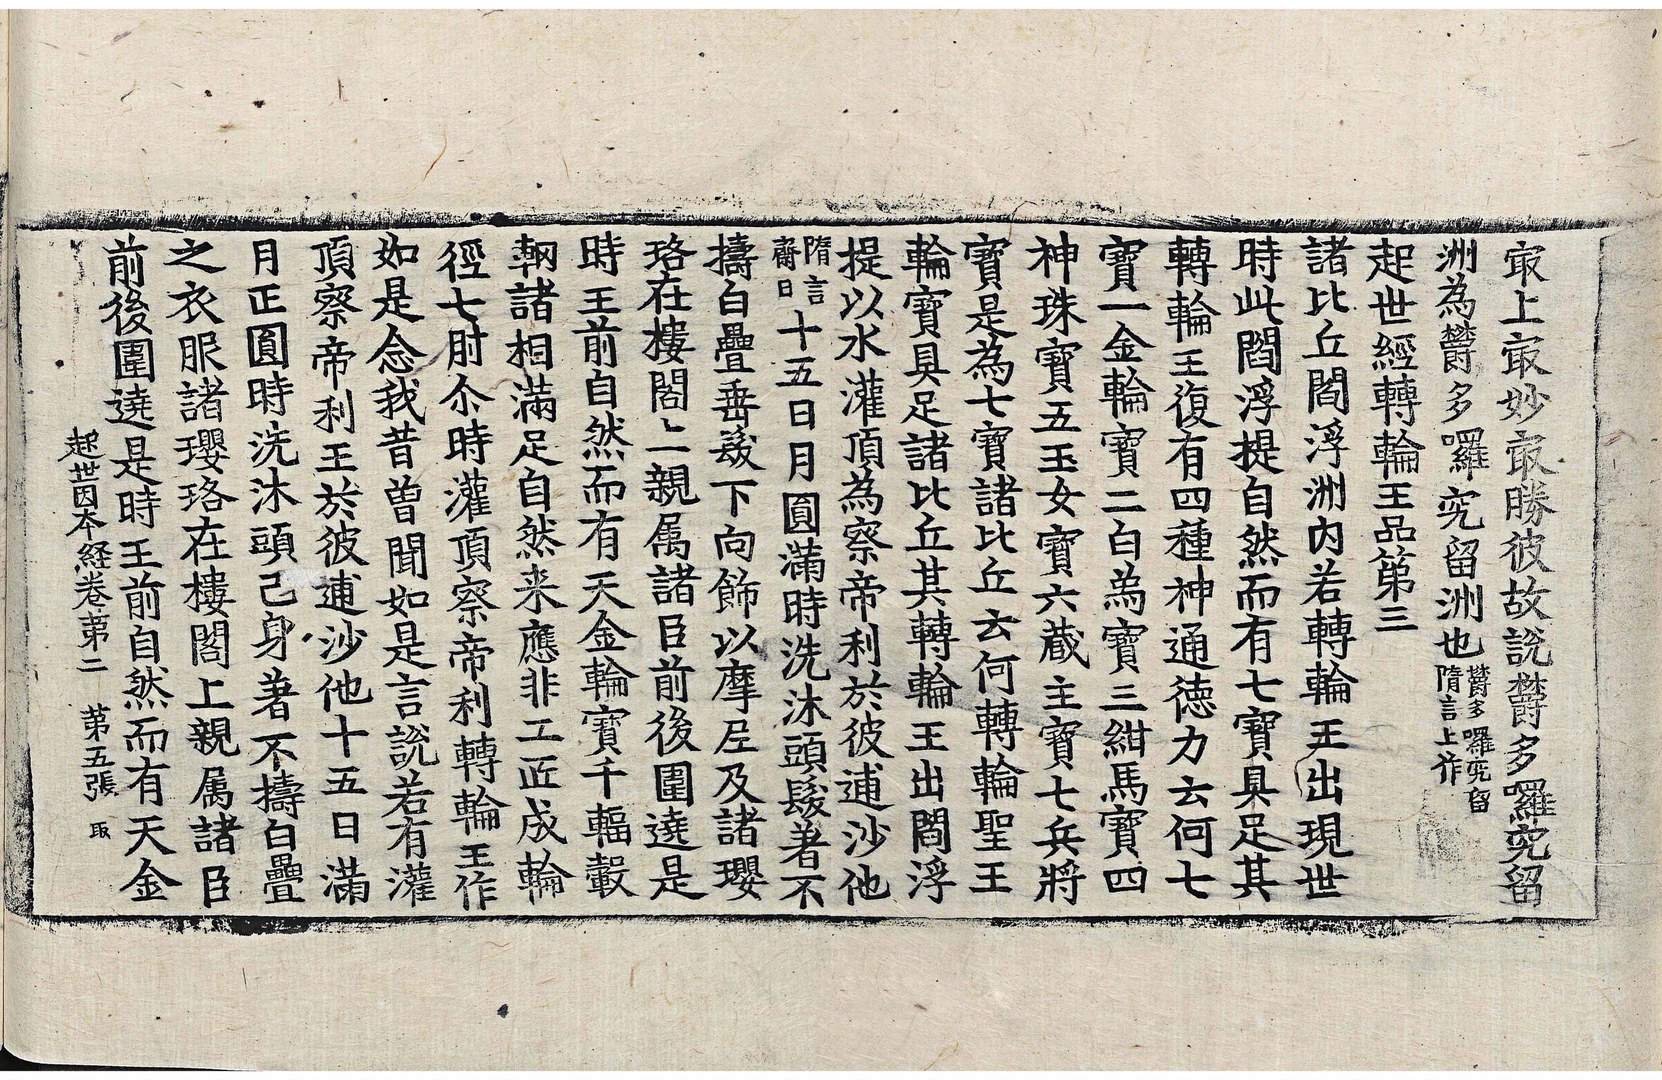 冣上冣妙冣勝彼故說欝多囉究留
洲為欝多囉究留洲也欝多囉究留隋言上作
起世經轉輪王品第三
諸比丘閻浮洲內若轉輪王出現世
時此閻浮提自然而有七寶具足其
轉輪王復有四種神通德力云何七
寶一金輪寶二白為寶三紺馬寶四
神珠寶五玉女寶六藏主寶七兵將
寶是為七寶諸比丘云何轉輪聖王
輪寶具足諸比丘其轉輪王出閻浮
提以水灌頂為察帝利於彼逋沙他
隋言齋日十五日月圓滿時洗沐頭髮著不
擣白疊垂髮下向飾以摩尼及諸瓔
珞在樓閣上親属諸臣前後圍遶是
時王前自然而有天金輪寶千輻轂
輞諸相滿足自然来應非工匠成輪
徑七肘尒時灌頂察帝利轉輪王作
如是念我昔曾聞如是言說若有灌
頂察帝利王於彼逋沙他十五日滿
月正圓時洗沐頭己身著不擣白疊
之衣服諸瓔珞在樓閣上親属諸臣
前後圍遶是時王前自然而有天金
起世因本経卷第二 第五張 取